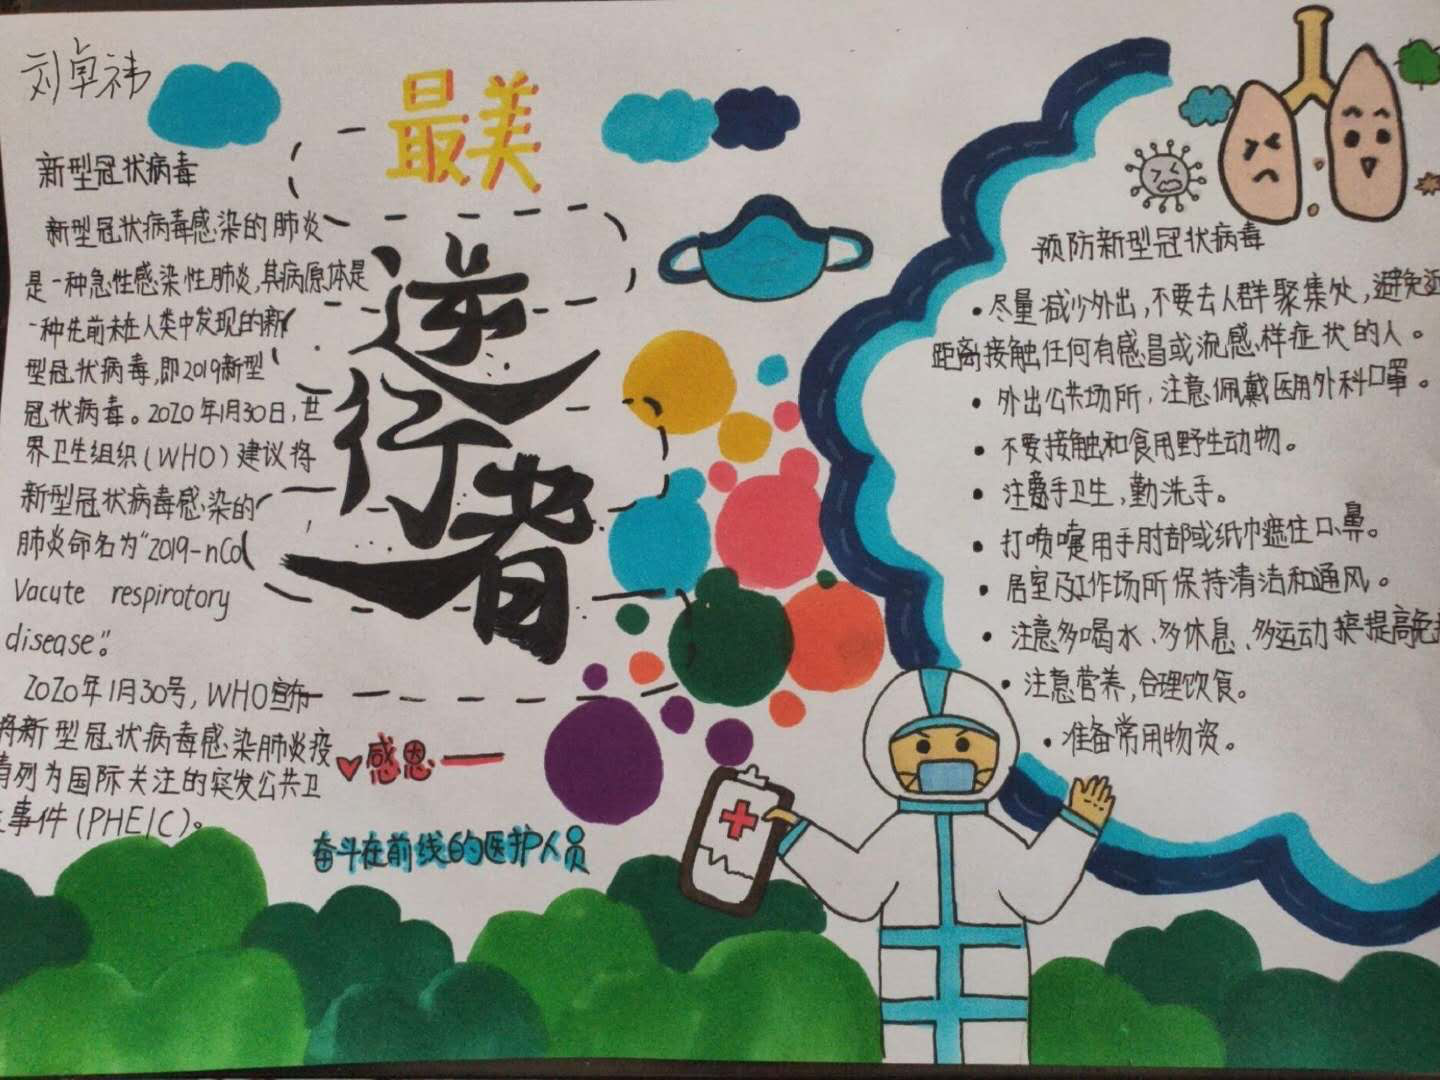 刘卓祎
最美
逆行者
新型冠状病毒
新型冠状病毒感染的肺炎
是一种急性感染性肺炎,其病原体是
一种先前未在人类中发现的新
型冠状病毒,即2019新型
冠状病毒。2020年1月30日,世
界卫生组织(WHO)建议将
新型冠状病毒感染的
肺炎命名为"2019-nCo
Vacute respiratory
disease".
2020年1月30号,WHO宣布
将新型冠状病毒感染肺炎疫
情列为国际关注的突发公共卫
生事件(PHEIC)。
感恩一
奋斗在前线的医护人员
预防新型冠状病毒
·尽量减少外出,不要去人群聚集处,避免近
距离接触任何有感冒或流感样症状的人。
·外出公共场所,注意佩戴医用外科口罩。
·不要接触和食用野生动物。
·注意手卫生,勤洗手。
·打喷嚏用手肘部或纸巾遮住口、鼻。
·居室及工作场所保持清洁和通风。
·注意多喝水、多休息、多运动来提高免
·注意营养,合理饮食。
·准备常用物资。